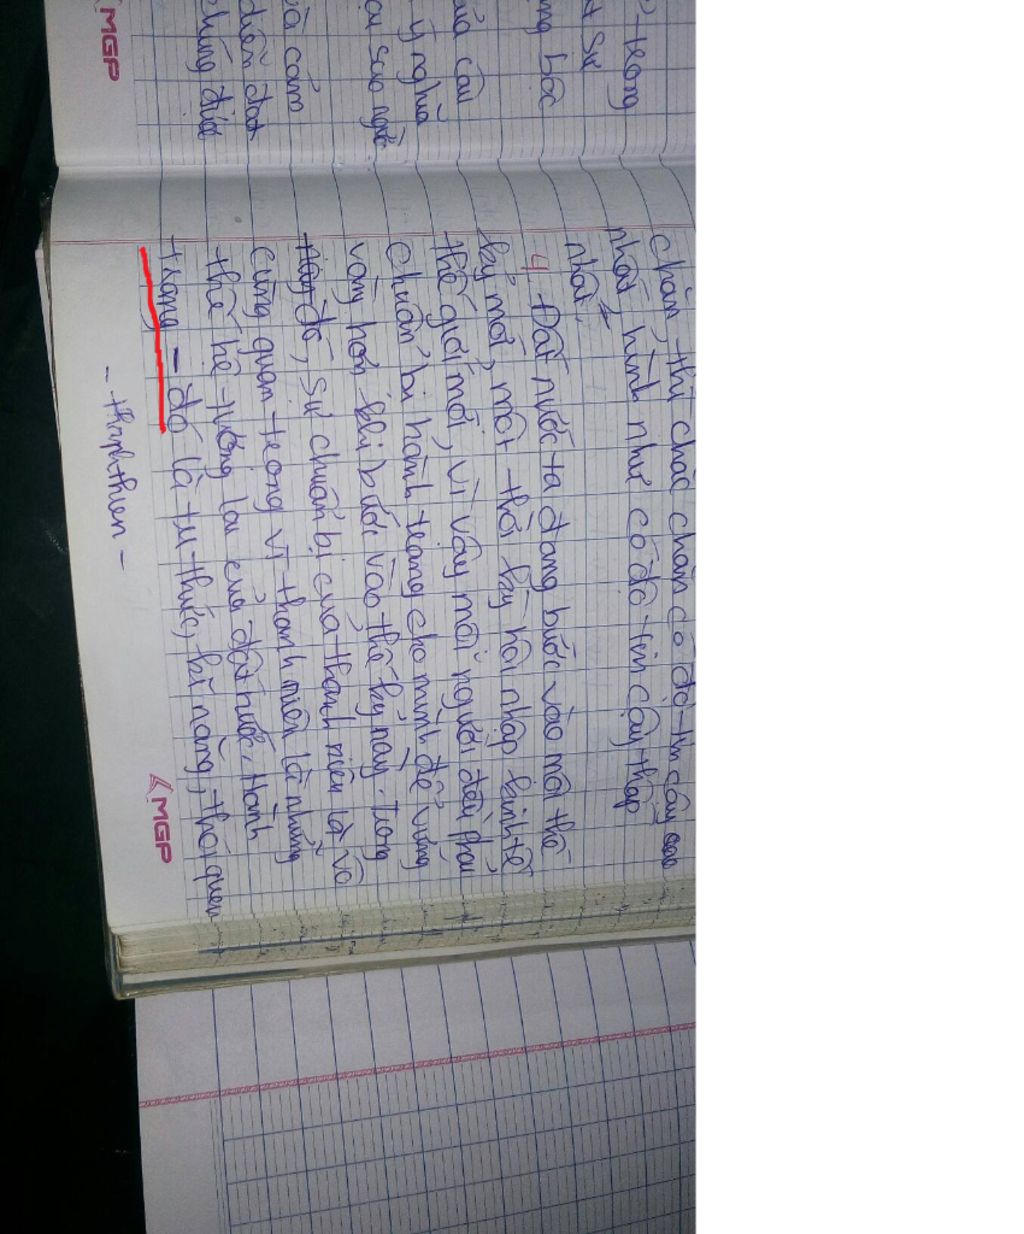 2-trong
t sự
ng bộc
ủa câu
ý nghĩa
ại sao người
và cảm
diễn đạt
chúng được
MGP
chắn, thì chắc chắn có độ tin cậy cao
nhất, hình như có độ tin cậy thấp
nhất,
4, Đất nước ta đang bước vào một thế
kỷ mới, một thời kỳ hội nhập kinh tế
thế giới mới, vì vậy mọi người đều phải
chuẩn bị hành trang cho mình để vững
vàng hơn khi bước vào thế kỷ này. Trong
đó, sự chuẩn bị của thanh niên là vô
cùng quan trọng vì thanh niên là những
thế hệ tương lai của đất nước. Hành
trang - đó là tri thức, kĩ năng, thói quen
- thinhthien -
MGP